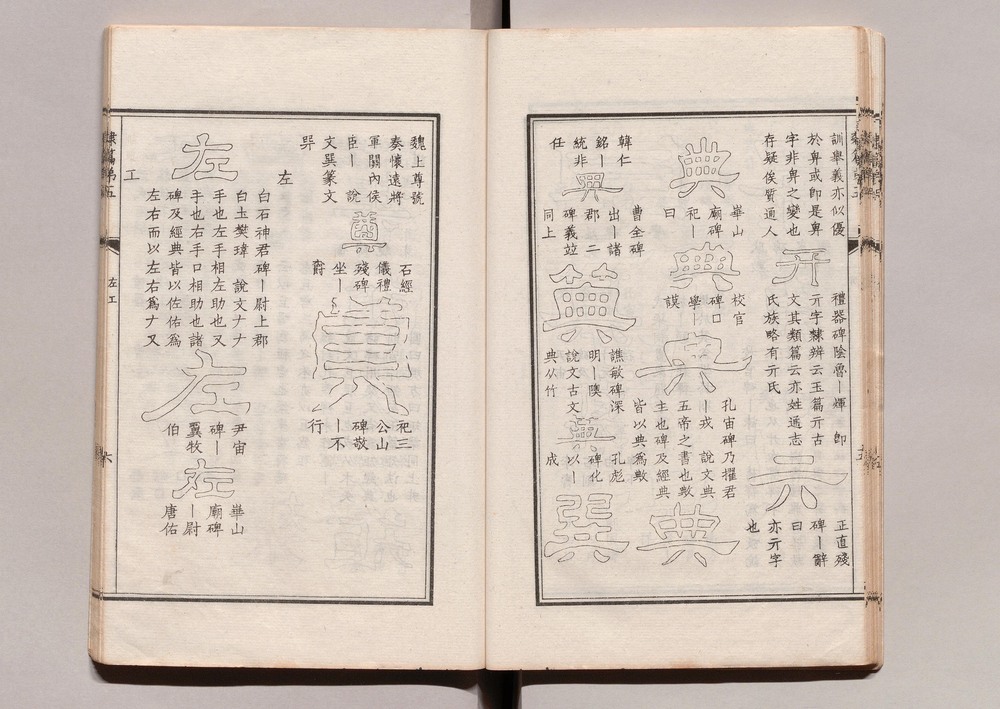 訓舉義亦似優
於畁或卽是畁
字非畁之變也
存疑俟質通人
禮器碑陰魯｜煇　卽
亓字隸辨云玉篇亓古
文其類篇云亦姓通志
氏族略有亓氏
亓
正直殘
碑｜辭
曰
亦亓字
也
典
華山
廟碑
祀｜
曰
典
校官
碑囗
學｜
謨
典
孔宙碑乃擢君
｜戎　說文典
五帝之書也敟
主也碑及經典
皆以典爲敟
典
韓仁
銘｜
統非
任
典
曹全碑
出｜諸
郡　二
碑義竝
同上
譙敏碑深
明｜隩
說文古文
典从竹
孔彪
碑化
以｜
成
巽
魏上尊號
奏懷遠將
軍關內侯
臣｜　說
文巽篆文
石經
儀禮
殘碑
坐｜
祀三
公山
碑敬
｜不
行
左
左
白石神君碑｜尉上郡
白土樊瑋　說文ナナ
手也左手相左助也又
手也右手口相助也諸
碑及經典皆以佐佑爲
左右而以左右爲ナ又
左
尹宙
碑｜
翼牧
伯
左
華山
廟碑
｜尉
唐佑
工
隸篇第五
左工
六